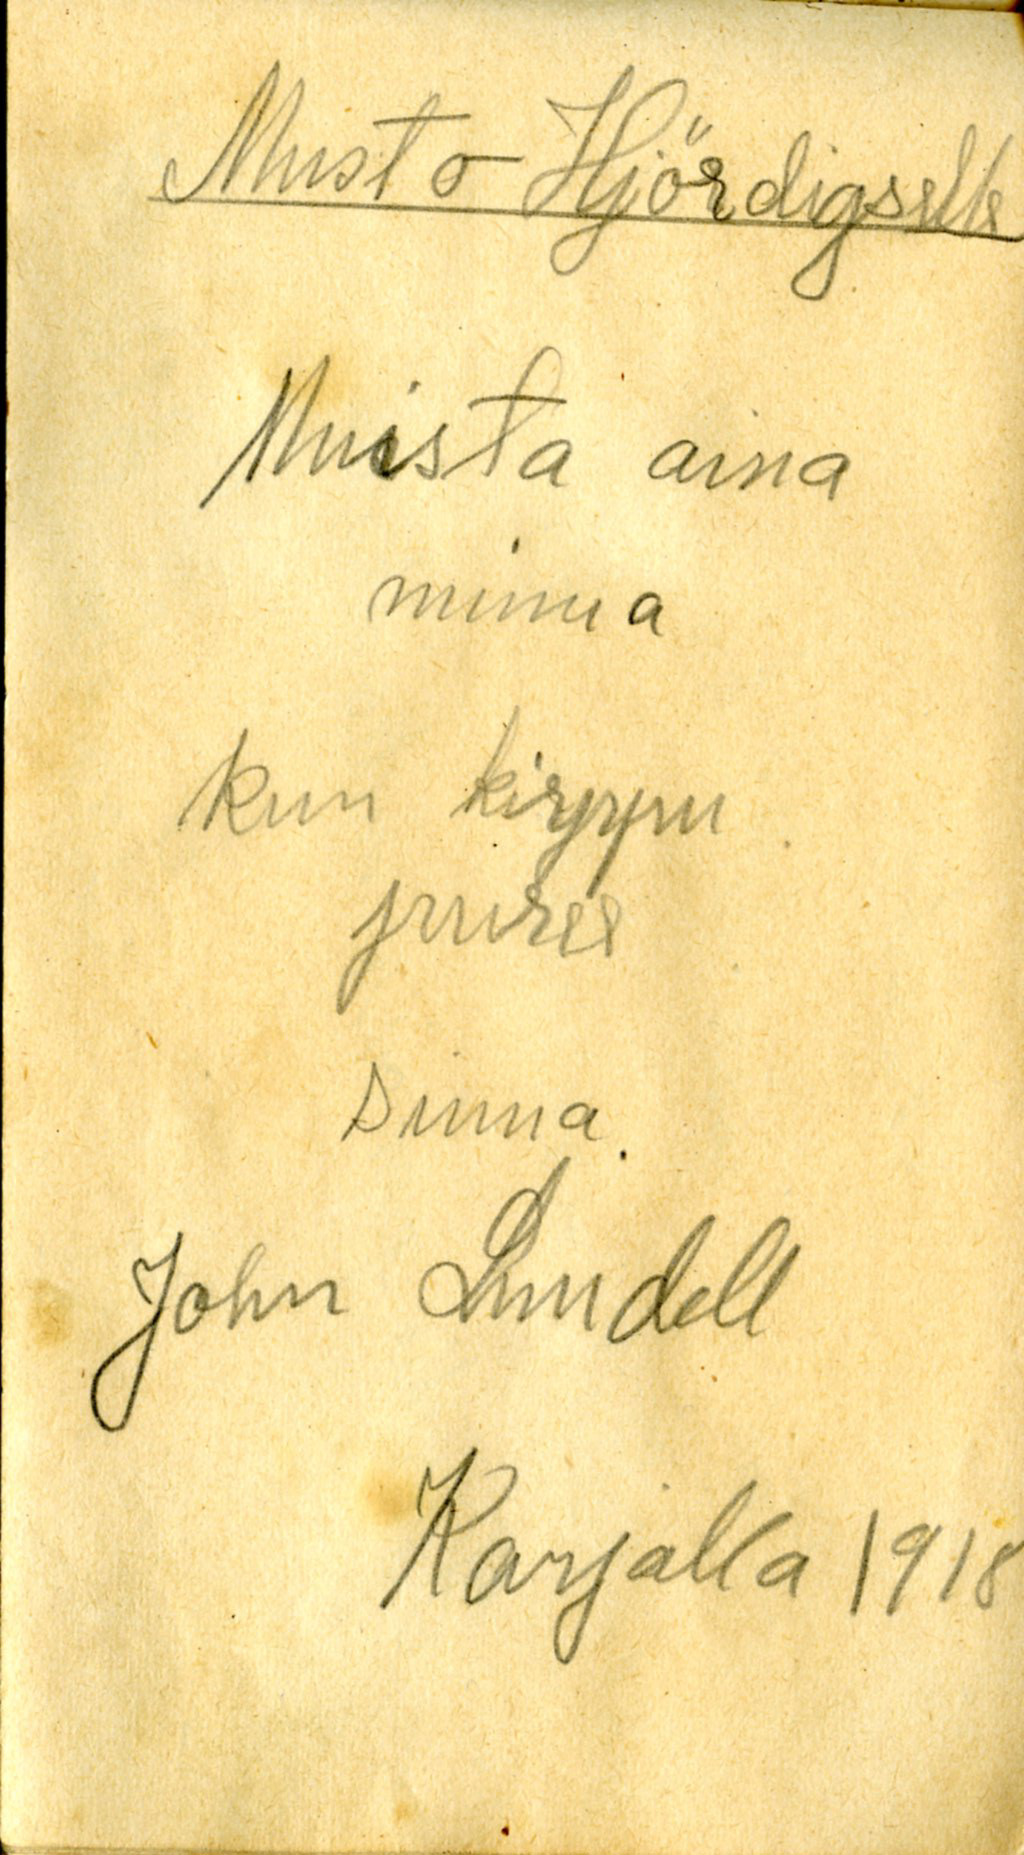 Muisto Hjördigselle
Muista aina
minua
kun kirppu
puree
sinua.
John Lundell
Karjalla 1918